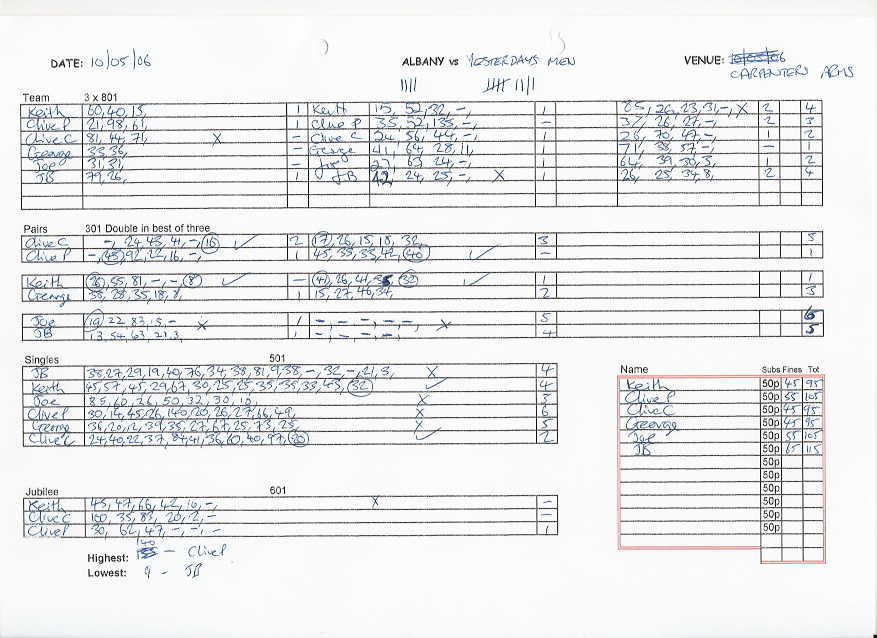 DATE: 10/05/06 ALBANY vs YESTERDAYS MEN VENUE: CARPENTERS ARMS
Team 3 x 801
Keith 60,40,15, 1 Keith 15, 52, 32, -, 1 85, 26, 23, 31, -, X 2 4
Clive P 21, 98, 61, 1 Clive P 35, 52, 135, -, - 37, 26, 27, -, 2 3
Clive C 81, 44, 71, X - Clive C 24, 56, 44, -, 1 26, 70, 47, -, 1 2
George - George 41, 64, 28, 11, 1 71, 38, 57, - - 1
Joe 31, 31, - Joe 63, 24, -, 1 64, 39, 30, 3, 1 2
JB 79, 26, 1 JB 24, 25, -, X 1 26, 25, 34, 8, 2 4
Pairs 301 Double in best of three
Clive C -, 24, 43, 41, -, 16 ✓ 2 17, 26, 15, 18, 32, 3 5
Clive P -, 45, 92, 22, 16, -, 1 45, 35, 33, 42, 40 ✓ - 1
Keith 26, 55, 81, -, - 8 ✓ - 41, 26, 41, 32 ✓ 1 1
George 58, 28, 35, 18, 8, 1 15, 27, 46, 34, 2 3
Joe 19, 22, 83, 15, - X 1 -, -, -, -, X 5 6
JB 13, 54, 63, 21, 3, 1 -, -, -, -, 4 5
Singles 501
JB 38, 27, 29, 19, 40, 76, 34, 38, 81, 9, 38, -, 32, -, 21, 3, X 4
Keith 45, 57, 45, 29, 67, 30, 25, 25, 35, 35, 33, 43, 32 ✓ 4
Joe 85, 60, 26, 50, 32, 30, 10, X 3
Clive P 30, 14, 45, 26, 140, 20, 26, 27, 16, 49, X 6
George 36, 20, 12, 39, 35, 27, 67, 25, 73, 25, X 5
Clive C 24, 40, 22, 37, 84, 41, 36, 60, 40, 97, 20 ✓ 2
Name Subs Fines Tot
Keith 50p 45 95
Clive P 50p 55 105
Clive C 50p 45 95
George 50p 45 95
Joe 50p 55 105
JB 50p 65 115
50p
50p
50p
50p
50p
50p
Jubilee 601
Keith 45, 47, 66, 42, 10, -, X -
Clive C 100, 35, 83, 20, 2, - -
Clive P 30, 62, 47, -, -, - 1
Highest: 140 - Clive P
Lowest: 9 - JB